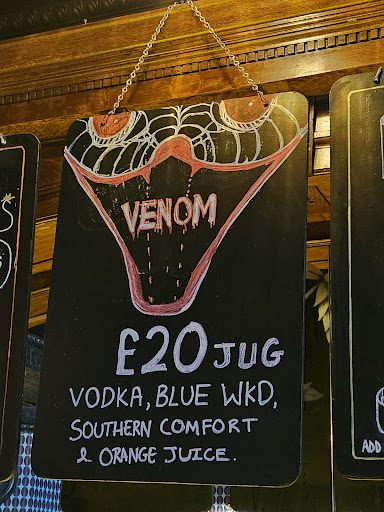 VENOM
£20 JUG
VODKA, BLUE WKD,
SOUTHERN COMFORT
& ORANGE JUICE.
ADD